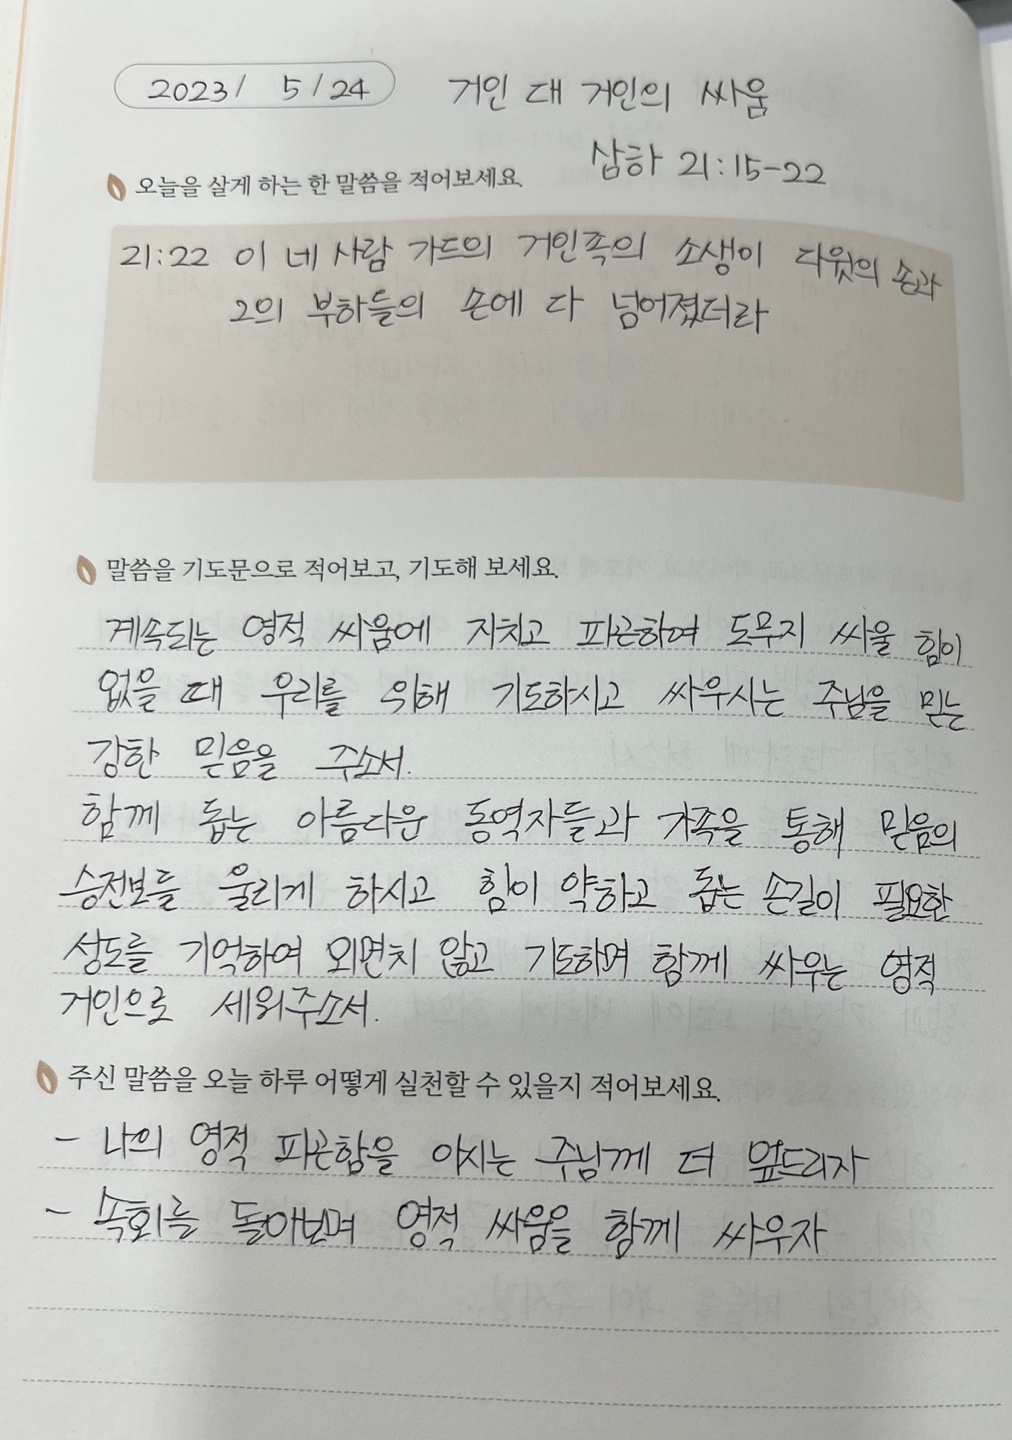 2023/ 5/24 거인 대 거인의 싸움
삼하 21:15-22
오늘을 살게 하는 한 말씀을 적어보세요.
21:22 이 네 사람 가드의 거인족의 소생이 다윗의 손과
그의 부하들의 손에 다 넘어졌더라
말씀을 기도문으로 적어보고, 기도해 보세요.
계속되는 영적 싸움에 지치고 피곤하여 도무지 싸울 힘이
없을 때 우리를 위해 기도하시고 싸우시는 주님을 믿는
강한 믿음을 주소서.
함께 돕는 아름다운 동역자들과 가족을 통해 믿음의
승전보를 울리게 하시고 힘이 약하고 돕는 손길이 필요한
성도를 기억하여 외면치 않고 기도하며 함께 싸우는 영적
거인으로 세워주소서.
주신 말씀을 오늘 하루 어떻게 실천할 수 있을지 적어보세요.
- 나의 영적 피곤함을 아시는 주님께 더 엎드리자
- 속회를 돌아보며 영적 싸움을 함께 싸우자